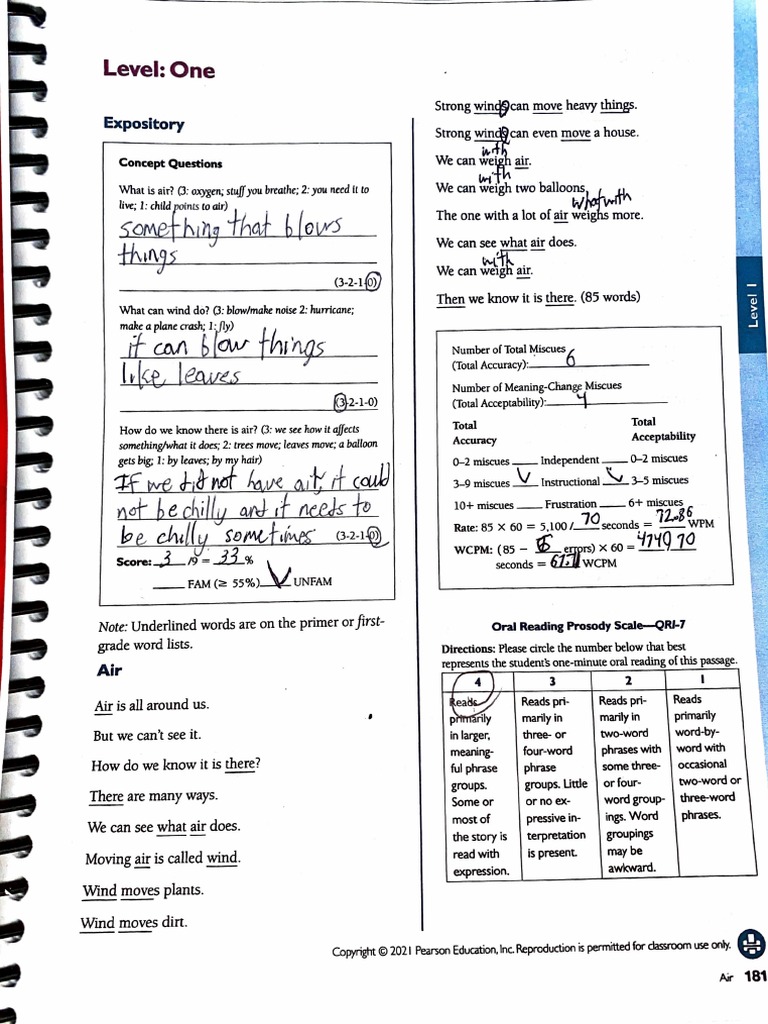 Level: One
Expository
Concept Questions
What is air? (3: oxygen; stuff you breathe; 2: you need it to
live; 1: child points to air)
something that blows
things
(3-2-1-0)
What can wind do? (3: blow/make noise 2: hurricane;
make a plane crash; 1: fly)
it can blow things
like leaves
(3-2-1-0)
How do we know there is air? (3: we see how it affects
something/what it does; 2: trees move; leaves move; a balloon
gets big; 1: by leaves; by my hair)
If we did not have air, it could
not be chilly and it needs to
be chilly sometimes (3-2-1-0)
Score: 3 /9 = 33 %
FAM (≥ 55%) ✓ UNFAM
Note: Underlined words are on the primer or first-
grade word lists.
Air
Air is all around us.
But we can't see it.
How do we know it is there?
There are many ways.
We can see what air does.
Moving air is called wind.
Wind moves plants.
Wind moves dirt.
Strong winds can move heavy things.
Strong winds can even move a house.
with
We can weigh air.
with
We can weigh two balloons.
what with
The one with a lot of air weighs more.
We can see what air does.
with
We can weigh air.
Then we know it is there. (85 words)
Number of Total Miscues
(Total Accuracy): 6
Number of Meaning-Change Miscues
(Total Acceptability): 4
Total Accuracy Total Acceptability
0–2 miscues Independent 0–2 miscues
3–9 miscues ✓ Instructional ✓ 3–5 miscues
10+ miscues Frustration 6+ miscues
Rate: 85 × 60 = 5,100/ 70 seconds = 72.86 WPM
WCPM: (85 − 6 errors) × 60 = 4740 70
seconds = 67.71 WCPM
Oral Reading Prosody Scale—QRI-7
Directions: Please circle the number below that best
represents the student's one-minute oral reading of this passage.
4
Reads
primarily
in larger,
meaning-
ful phrase
groups.
Some or
most of
the story is
read with
expression.
3
Reads pri-
marily in
three- or
four-word
phrase
groups. Little
or no ex-
pressive in-
terpretation
is present.
2
Reads pri-
marily in
two-word
phrases with
some three-
or four-
word group-
ings. Word
groupings
may be
awkward.
1
Reads
primarily
word-by-
word with
occasional
two-word or
three-word
phrases.
Level 1
Copyright © 2021 Pearson Education, Inc. Reproduction is permitted for classroom use only.
Air 181